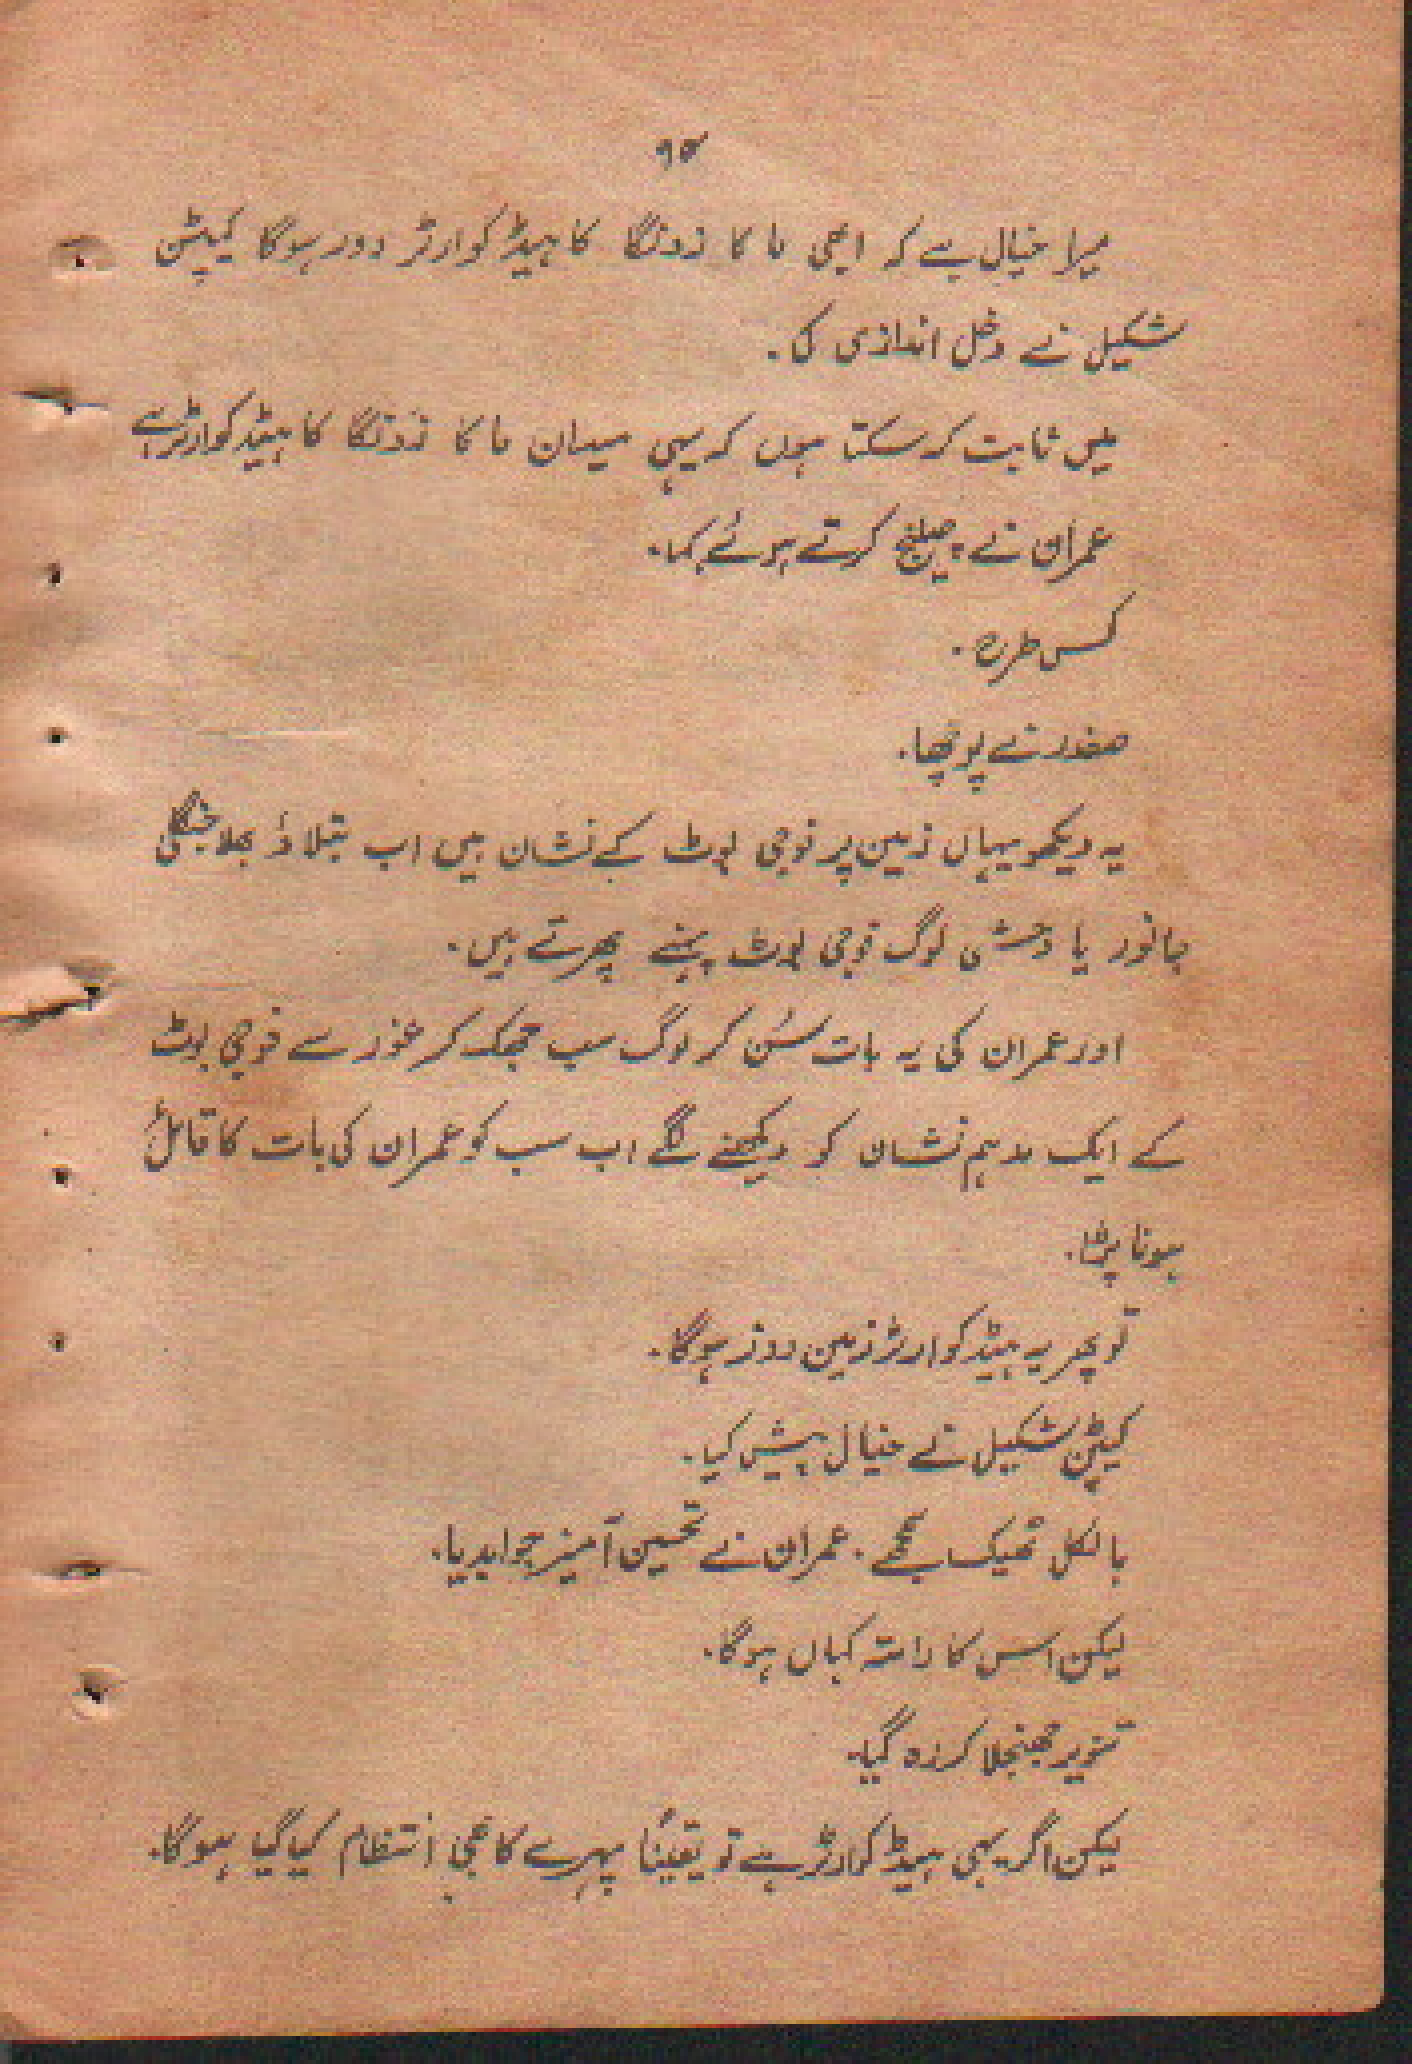 ۹۴
میرا خیال ہے کہ ابھی ماکا زونگا کا ہیڈ کوارٹر دور ہوگا کیپٹن
شکیل نے دخل اندازی کی۔
میں ثابت کر سکتا ہوں کہ یہی میدان ماکا زونگا کا ہیڈ کوارٹر ہے
عمران نے چیلنج کرتے ہوئے کہا۔
کس طرح۔
صفدر نے پوچھا۔
یہ دیکھو یہاں زمین پر فوجی بوٹ کے نشان ہیں اب بتلاؤ بھلا جنگلی
جانور یا وحشی لوگ فوجی بوٹ پہنے پھرتے ہیں۔
اور عمران کی یہ بات سُن کر لوگ سب جھک کر غور سے فوجی بوٹ
کے ایک مدہم نشان کو دیکھنے لگے اب سب کو عمران کی بات کا قائل
ہونا پڑا۔
تو پھر یہ ہیڈ کوارٹر زمین دوز ہوگا۔
کیپٹن شکیل نے خیال پیش کیا۔
بالکل ٹھیک سمجھے۔ عمران نے تحسین آمیز جواب دیا۔
لیکن اس کا راستہ کہاں ہوگا۔
تنویر جھنجلا کر رہ گیا۔
لیکن اگر یہی ہیڈ کوارٹر ہے تو یقیناً پہرے کا بھی انتظام کیا گیا ہوگا۔